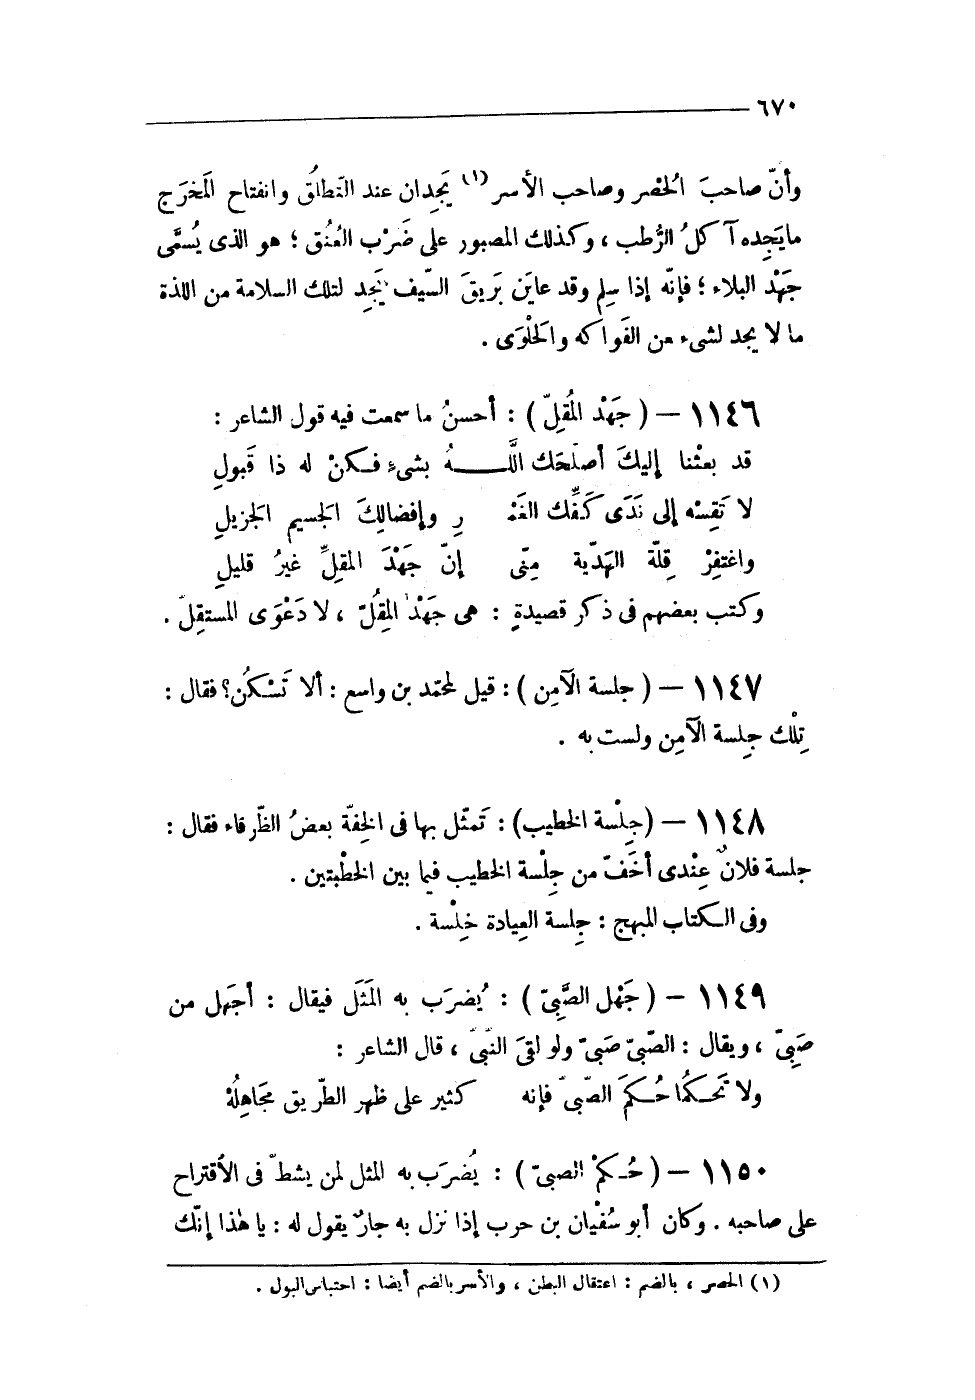 ٦٧٠
وأنّ صاحبَ الُحْصر وصاحب الأسر (١) يَجِدان عند التَّطلُّق وانفتاح الَمخرَج
مايَجِده آكلُ الرُّطب ، وكذلك المصبور على ضَرْب العُنُق ؛ هو الذى يُسمَّى
جَهْد البلاء ؛ فإنّه إذا سلِم وقد عايَن بَريقَ السّيف يَجِد لتلك السلامة من اللذة
ما لا يجد لشىء من الفَواكه والَحلْوَى .
١١٤٦ — ( جَهْد الُمقِلّ ) : أحسنُ ما سمعت فيه قول الشاعر :
قد بعثْنا إليكَ أصلَحَك اللَّـــهُ بشىءٍ فكنْ له ذا قَبولِ
لا تَقِسْه إلى نَدَى كَفِّك الغَمْـ رِ وإفضالِكَ الجسيم الجزيلِ
واغتفِرْ قِلّة الهَدّية مِنّى إنّ جَهْدَ المقلِّ غيرُ قليلِ
وكتب بعضهم فى ذكر قصيدةٍ : هى جَهْدُ المِقُلّ ، لا دَعْوَى المستقِلّ .
١١٤٧ — ( جلسة الآمِن ) : قيل لمحمّد بن واسع : ألا تَسْكُن؟ فقال :
تِلْك جِلسة الآمِن ولست به .
١١٤٨ — (جِلْسة الخطيب) : تَمثّل بها فى الخِفّة بعضُ الظّرفاء فقال :
جلسة فلانٌ عِنْدى أخَفّ من جِلْسة الخطيب فيما بين الخطْبتين .
وفى الكتاب المبهج : جِلسة العِيادة خلْسة .
١١٤٩ — ( جَهْل الصَّبِىّ ) : يُضرَب به الَمثَل فيقال : أجهَل من
صَبِىّ ، ويقال : الصّبىّ صَبىّ ولو لقىَ النّبىّ ، قال الشاعر :
ولا تَحكُما حُكمَ الصّبىّ فإنه كثير على ظهر الطّريق مَجَاهِلُهْ
١١٥٠ — ( حُكمْ الصبىّ ) : يُضرَب به المثل لمن يشطّ فى الأقتراح
على صاحبه . وكان أبو سُفْيان بن حرب إذا نزل به جارٌ يقول له : يا هٰذا إنّك
(١) الحصر ، بالضم : اعتقال البطن ، والأسر بالضم أيضا : احتباس البول .